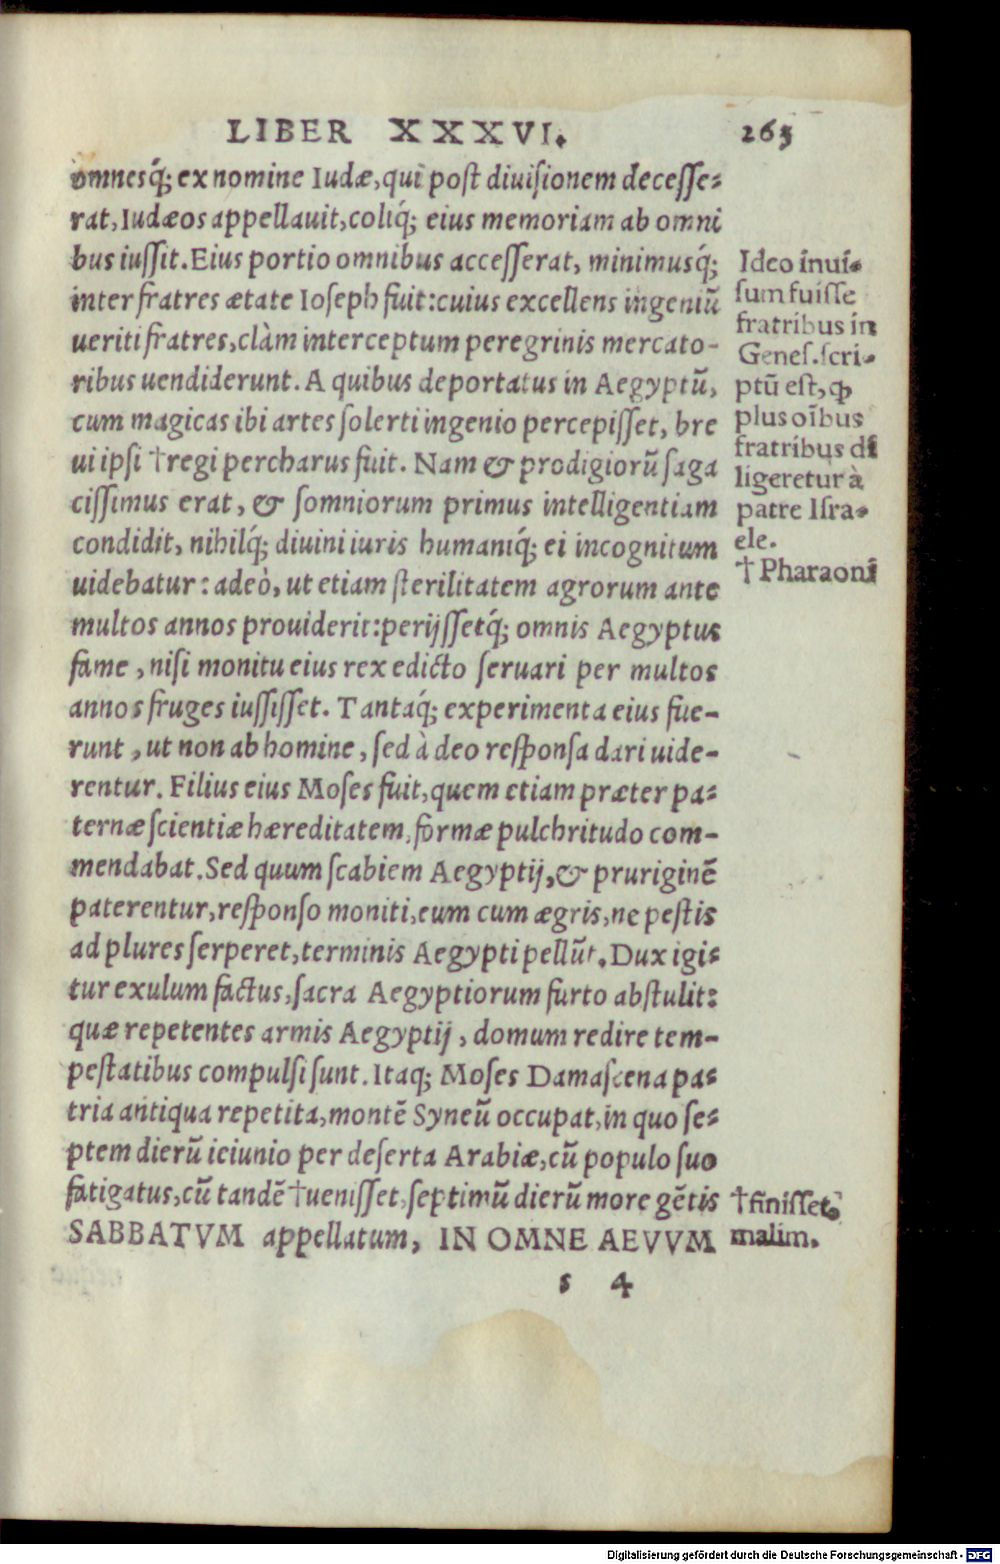 LIBER XXXVI. 265
omnesq́; ex nomine Iudæ, qui post diuisionem decesse-
rat, Iudæos appellauit, coliq́; eius memoriam ab omni
bus iussit. Eius portio omnibus accesserat, minimusq́;
inter fratres ætate Ioseph fuit: cuius excellens ingeniũ
ueriti fratres, clàm interceptum peregrinis mercato-
ribus uendiderunt. A quibus deportatus in Aegyptũ,
cum magicas ibi artes solerti ingenio percepisset, bre
ui ipsi †regi percharus fuit. Nam & prodigiorũ saga
cissimus erat, & somniorum primus intelligentiam
condidit, nihilq́; diuini iuris humaniq́; ei incognitum
uidebatur: adeò, ut etiam sterilitatem agrorum ante
multos annos prouiderit: perijssetq́; omnis Aegyptus
fame, nisi monitu eius rex edicto seruari per multos
annos fruges iussisset. Tantaq́; experimenta eius fue-
runt, ut non ab homine, sed à deo responsa dari uide-
rentur. Filius eius Moses fuit, quem etiam præter pa-
ternæ scientiæ hæreditatem, formæ pulchritudo com-
mendabat. Sed quum scabiem Aegyptij, & pruriginẽ
paterentur, responso moniti, eum cum ægris, ne pestis
ad plures serperet, terminis Aegypti pellũt. Dux igi-
tur exulum factus, sacra Aegyptiorum furto abstulit:
quæ repetentes armis Aegyptij, domum redire tem-
pestatibus compulsi sunt. Itaq; Moses Damascena pa-
tria antiqua repetita, montẽ Syneũ occupat, in quo se-
ptem dierũ ieiunio per deserta Arabiæ, cũ populo suo
fatigatus, cũ tandẽ †uenisset, septimũ dierũ more gẽtis
SABBATVM appellatum, IN OMNE AEVVM
s 4
Ideo inui-
sum fuisse
fratribus in
Genes. scri-
ptũ est, ꝙ
plus oĩbus
fratribus di
ligeretur à
patre Isra-
ele.
†Pharaoni
†finisset,
malim.
Digitalisierung gefördert durch die Deutsche Forschungsgemeinschaft - DFG